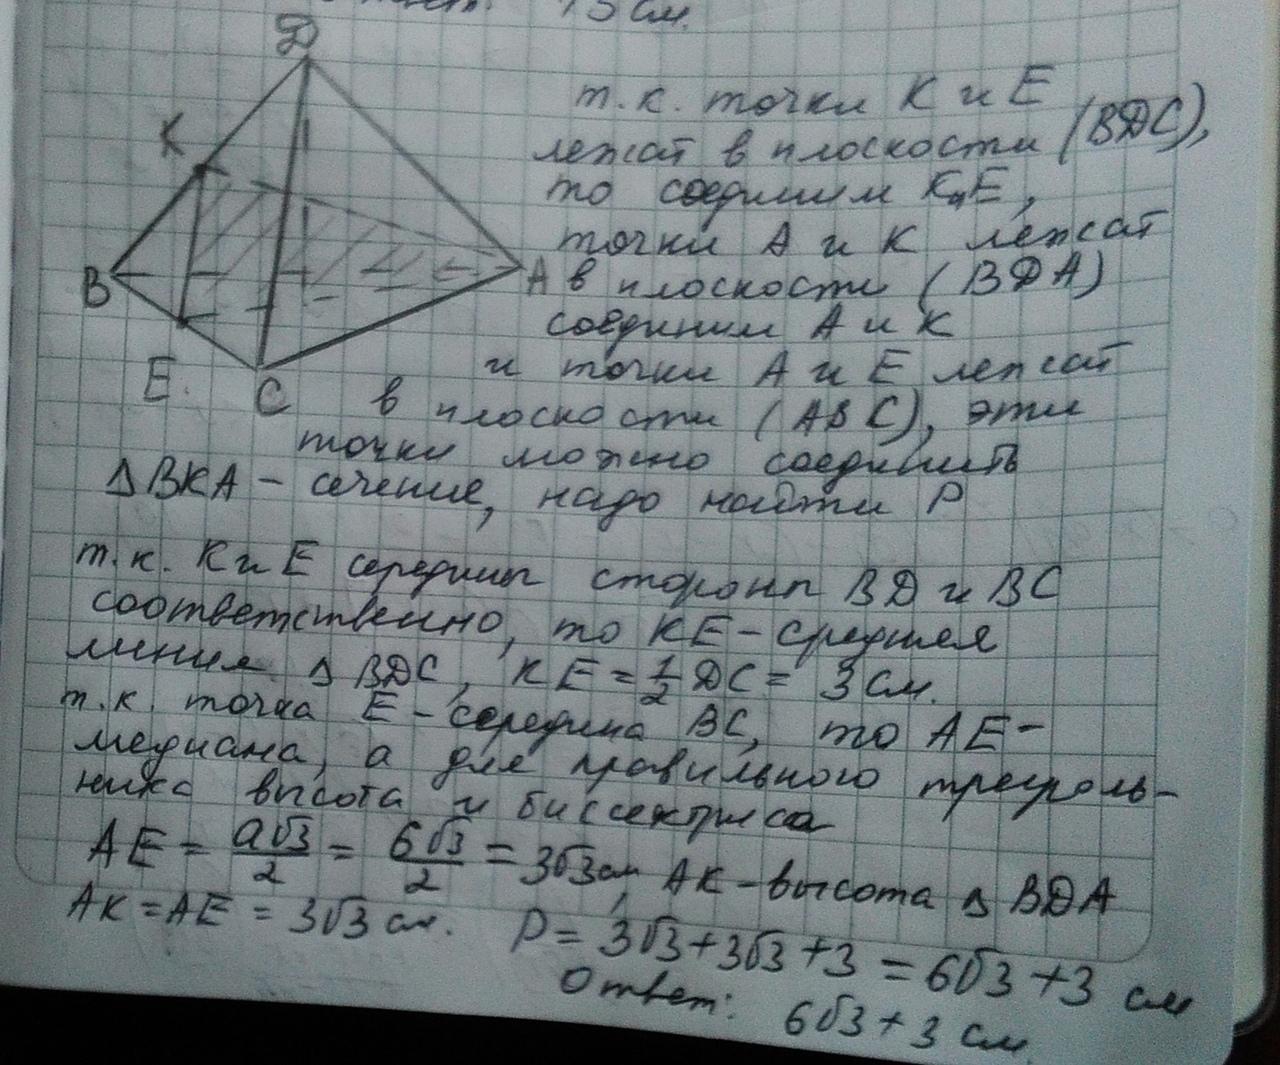 15 см.
D
K
B
A
E.
C
т.к. точки K и E
лежат в плоскости (BDC),
то соединим K и E,
точки A и K лежат
в плоскости (BDA)
соединим A и K
и точки A и E лежат
в плоскости (ABC), эти
точки можно соединить
Δ BKA - сечение, надо найти P
т.к. K и E середины сторон BD и BC
соответственно, то KE - средняя
линия Δ BDC, KE = 1/2 DC = 3 см.
т.к. точка E - середина BC, то AE -
медиана, а для правильного треуголь-
ника высота и биссектриса
AE = a√3/2 = 6√3/2 = 3√3 см, AK - высота Δ BDA
AK = AE = 3√3 см. P = 3√3 + 3√3 + 3 = 6√3 + 3 см
Ответ: 6√3 + 3 см.